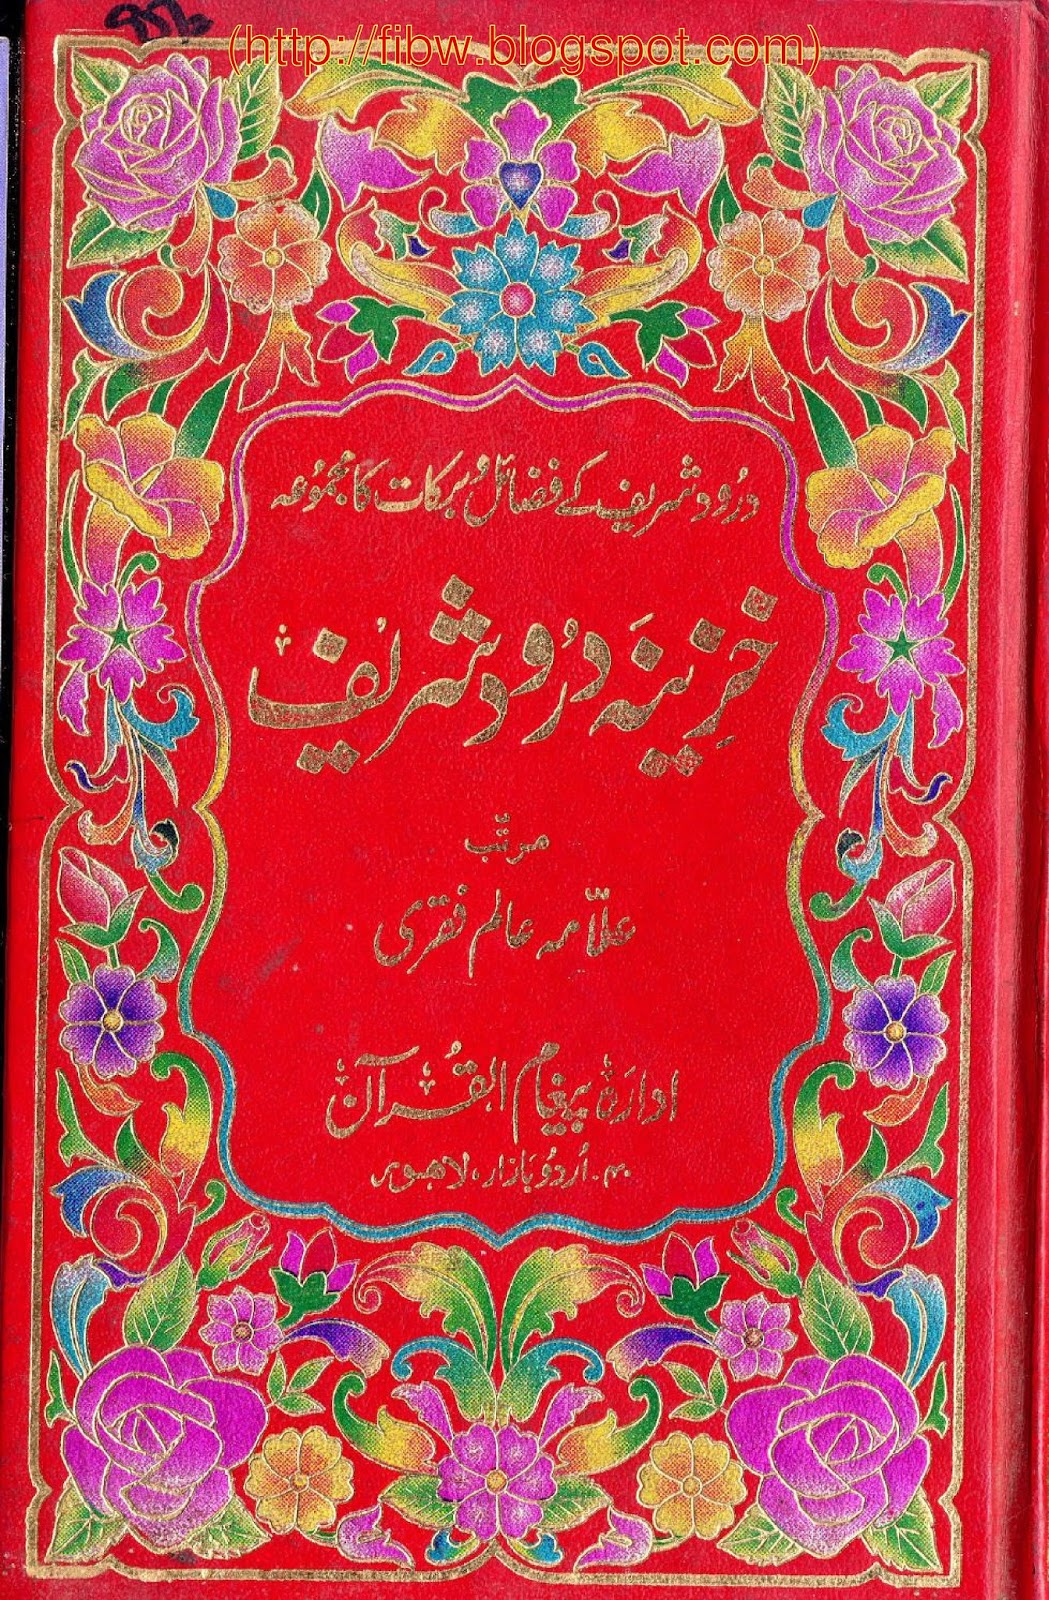 (http://fibw.blogspot.com)
درود شریف کے فضائل و برکات کا مجموعہ
خزینہ درود شریف
مرتّب
علّامہ عالم فقری
ادارہ پیغام القرآن
۴۰۔ اردو بازار، لاہور